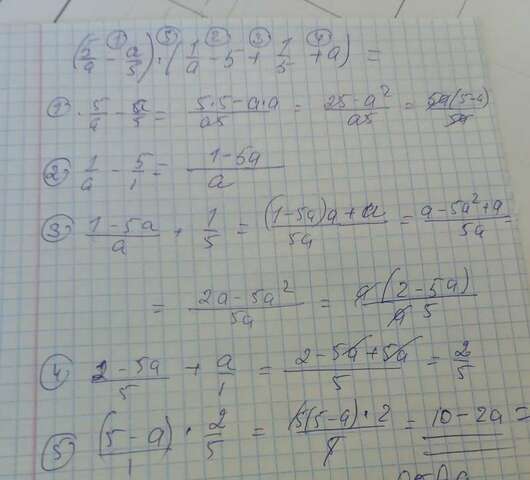 (5/a - a/5) : (1/a - 5 + 1/5 + a) =
① 5/a - a/5 = (5·5-a·a)/a5 = (25-a²)/a5 = 5a(5-a)/5a
② 1/a - 5/1 = (1-5a)/a
③ (1-5a)/a + 1/5 = ((1-5a)a+a)/5a = (a-5a²+a)/5a =
= (2a-5a²)/5a = a(2-5a)/a5
④ (2-5a)/5 + a/1 = (2-5a+5a)/5 = 2/5
⑤ (5-a)/1 · 2/5 = 5(5-a)·2/1 = 10-2a =